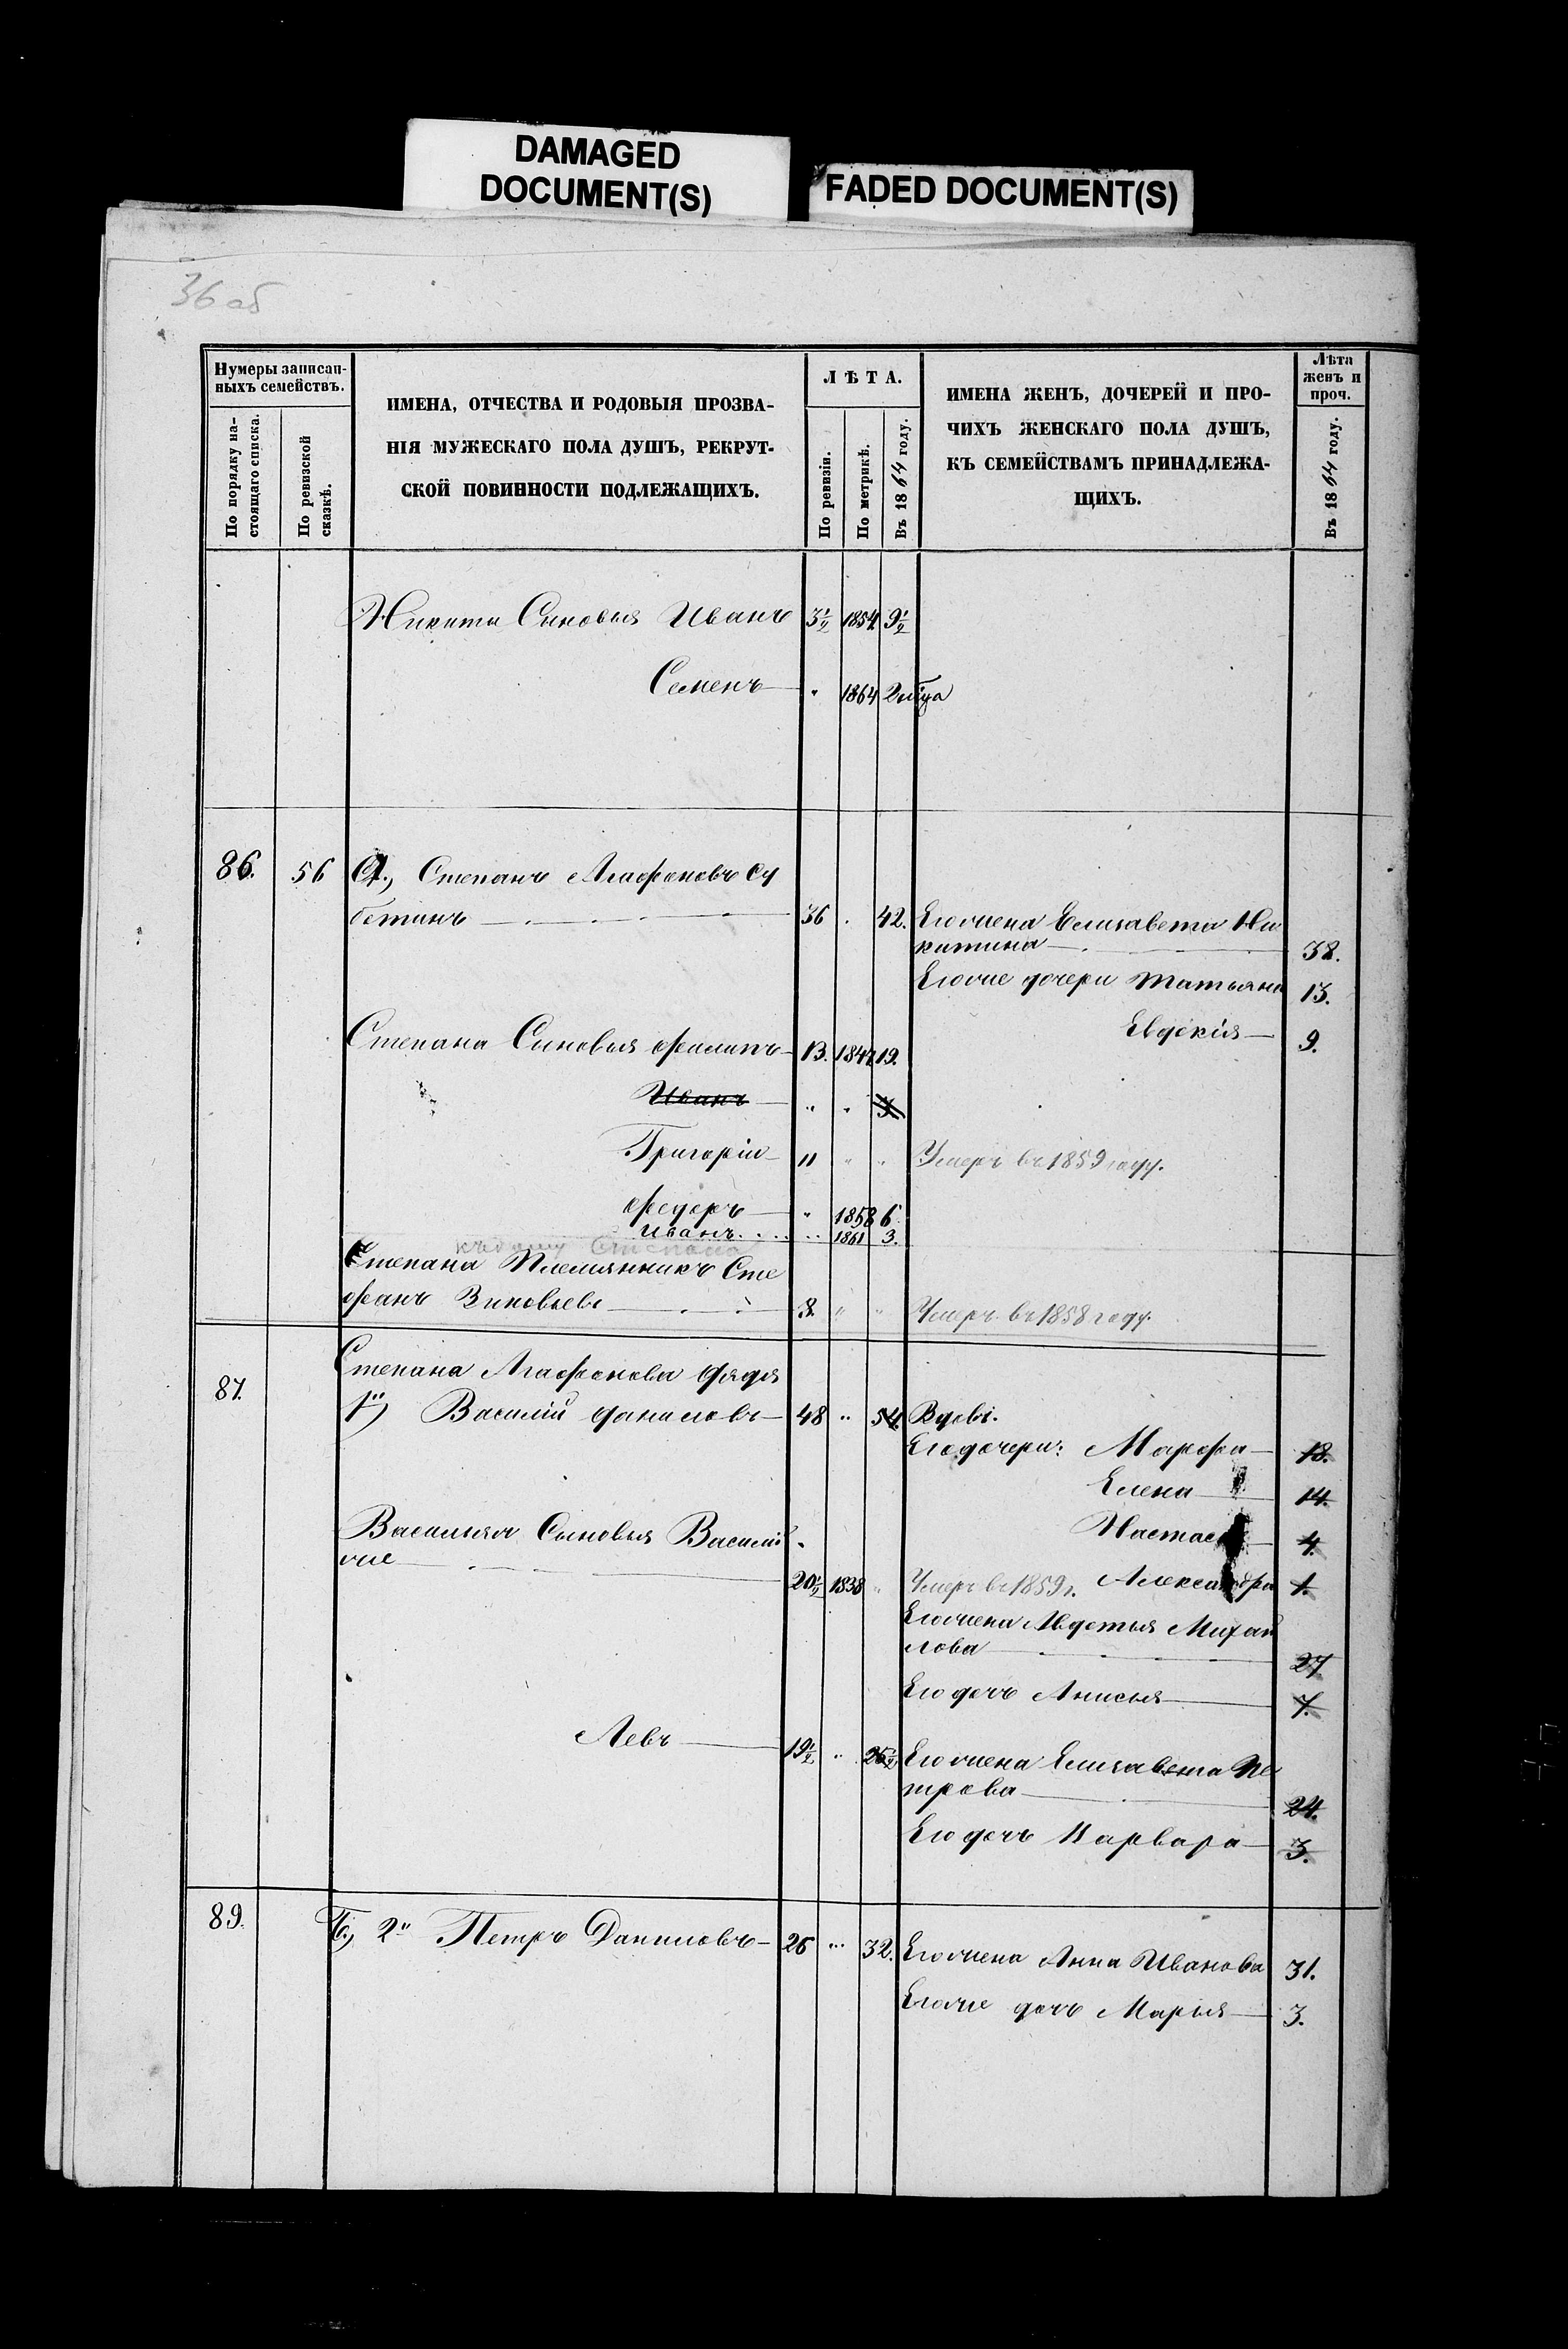 DAMAGED
DOCUMENT(S)
FADED DOCUMENT(S)
36 об
Нумеры записан-
ныхъ семействъ.
По порядку на-
стоящаго списка.
По ревизской
сказкѣ.
ИМЕНА, ОТЧЕСТВА И РОДОВЫЯ ПРОЗВА-
НІЯ МУЖЕСКАГО ПОЛА ДУШЪ, РЕКРУТ-
СКОЙ ПОВИННОСТИ ПОДЛЕЖАЩИХЪ.
ЛѢТА.
По ревизіи.
По метрикѣ.
Въ 1864 году.
ИМЕНА ЖЕНЪ, ДОЧЕРЕЙ И ПРО-
ЧИХЪ ЖЕНСКАГО ПОЛА ДУШЪ,
КЪ СЕМЕЙСТВАМЪ ПРИНАДЛЕЖА-
ЩИХЪ.
Лѣта
женъ и
проч.
Въ 1864 году.
Никиты Сыновья Иванъ 3½ 1854 9½
Семенъ " 1864 2 мѣца
86. 56 Степанъ Агафоновъ Су
бетинъ 36 . 42. Его жена Елисавета Ни
китина 38.
Его же дочери Татьяна 13.
Евдокія 9.
Степана Сыновья Филипъ 13. 1847 19.
Иванъ " " 3
Григорій 11 " " Умеръ въ 1859 году.
Федоръ " 1858 6
Иванъ " 1861 3.
Степана
Степана Племянникъ Сте
фанъ Зиновьевъ 8. " " Умеръ въ 1858 году.
87. Степана Агафонова дядя
1й) Василій Даниловъ 48 " 54. Вдовъ.
Его дочери: Марфа 18.
Елена 14.
Настасья 4.
Василья Сыновья Василій
же 20½ 1838 " Умеръ въ 1859 г. Александра 1.
Его жена Авдотья Михай
лова 27
Его дочь Анисья 7.
Левъ 19½ " 25½ Его жена Елисавета Пе
трова 24.
Его дочь Варвара 3.
89. Б) 2й Петръ Даниловъ 26 " 32. Его жена Анна Иванова 31.
Его же дочь Марья 3.